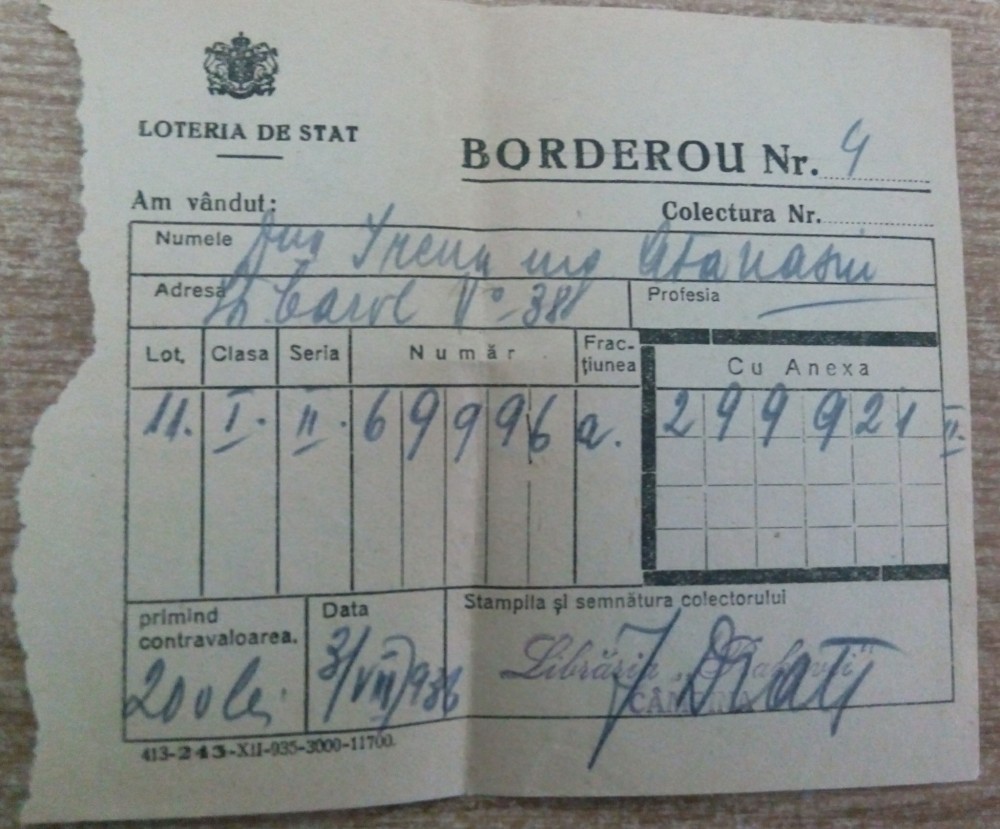 LOTERIA DE STAT
BORDEROU Nr. 4
Am vândut:
Colectura Nr.
Numele Dna Irena ing Atanasiu
Adresa Carol No 38
Profesia
Lot. Clasa Seria Număr Frac-țiunea Cu Anexa
11. I. II. 69996 a. 299921 II.
primind contravaloarea.
200 lei
Data
3/VIII/936
Stampila și semnătura colectorului
Librăria
413-243-XII-935-3000-11700.